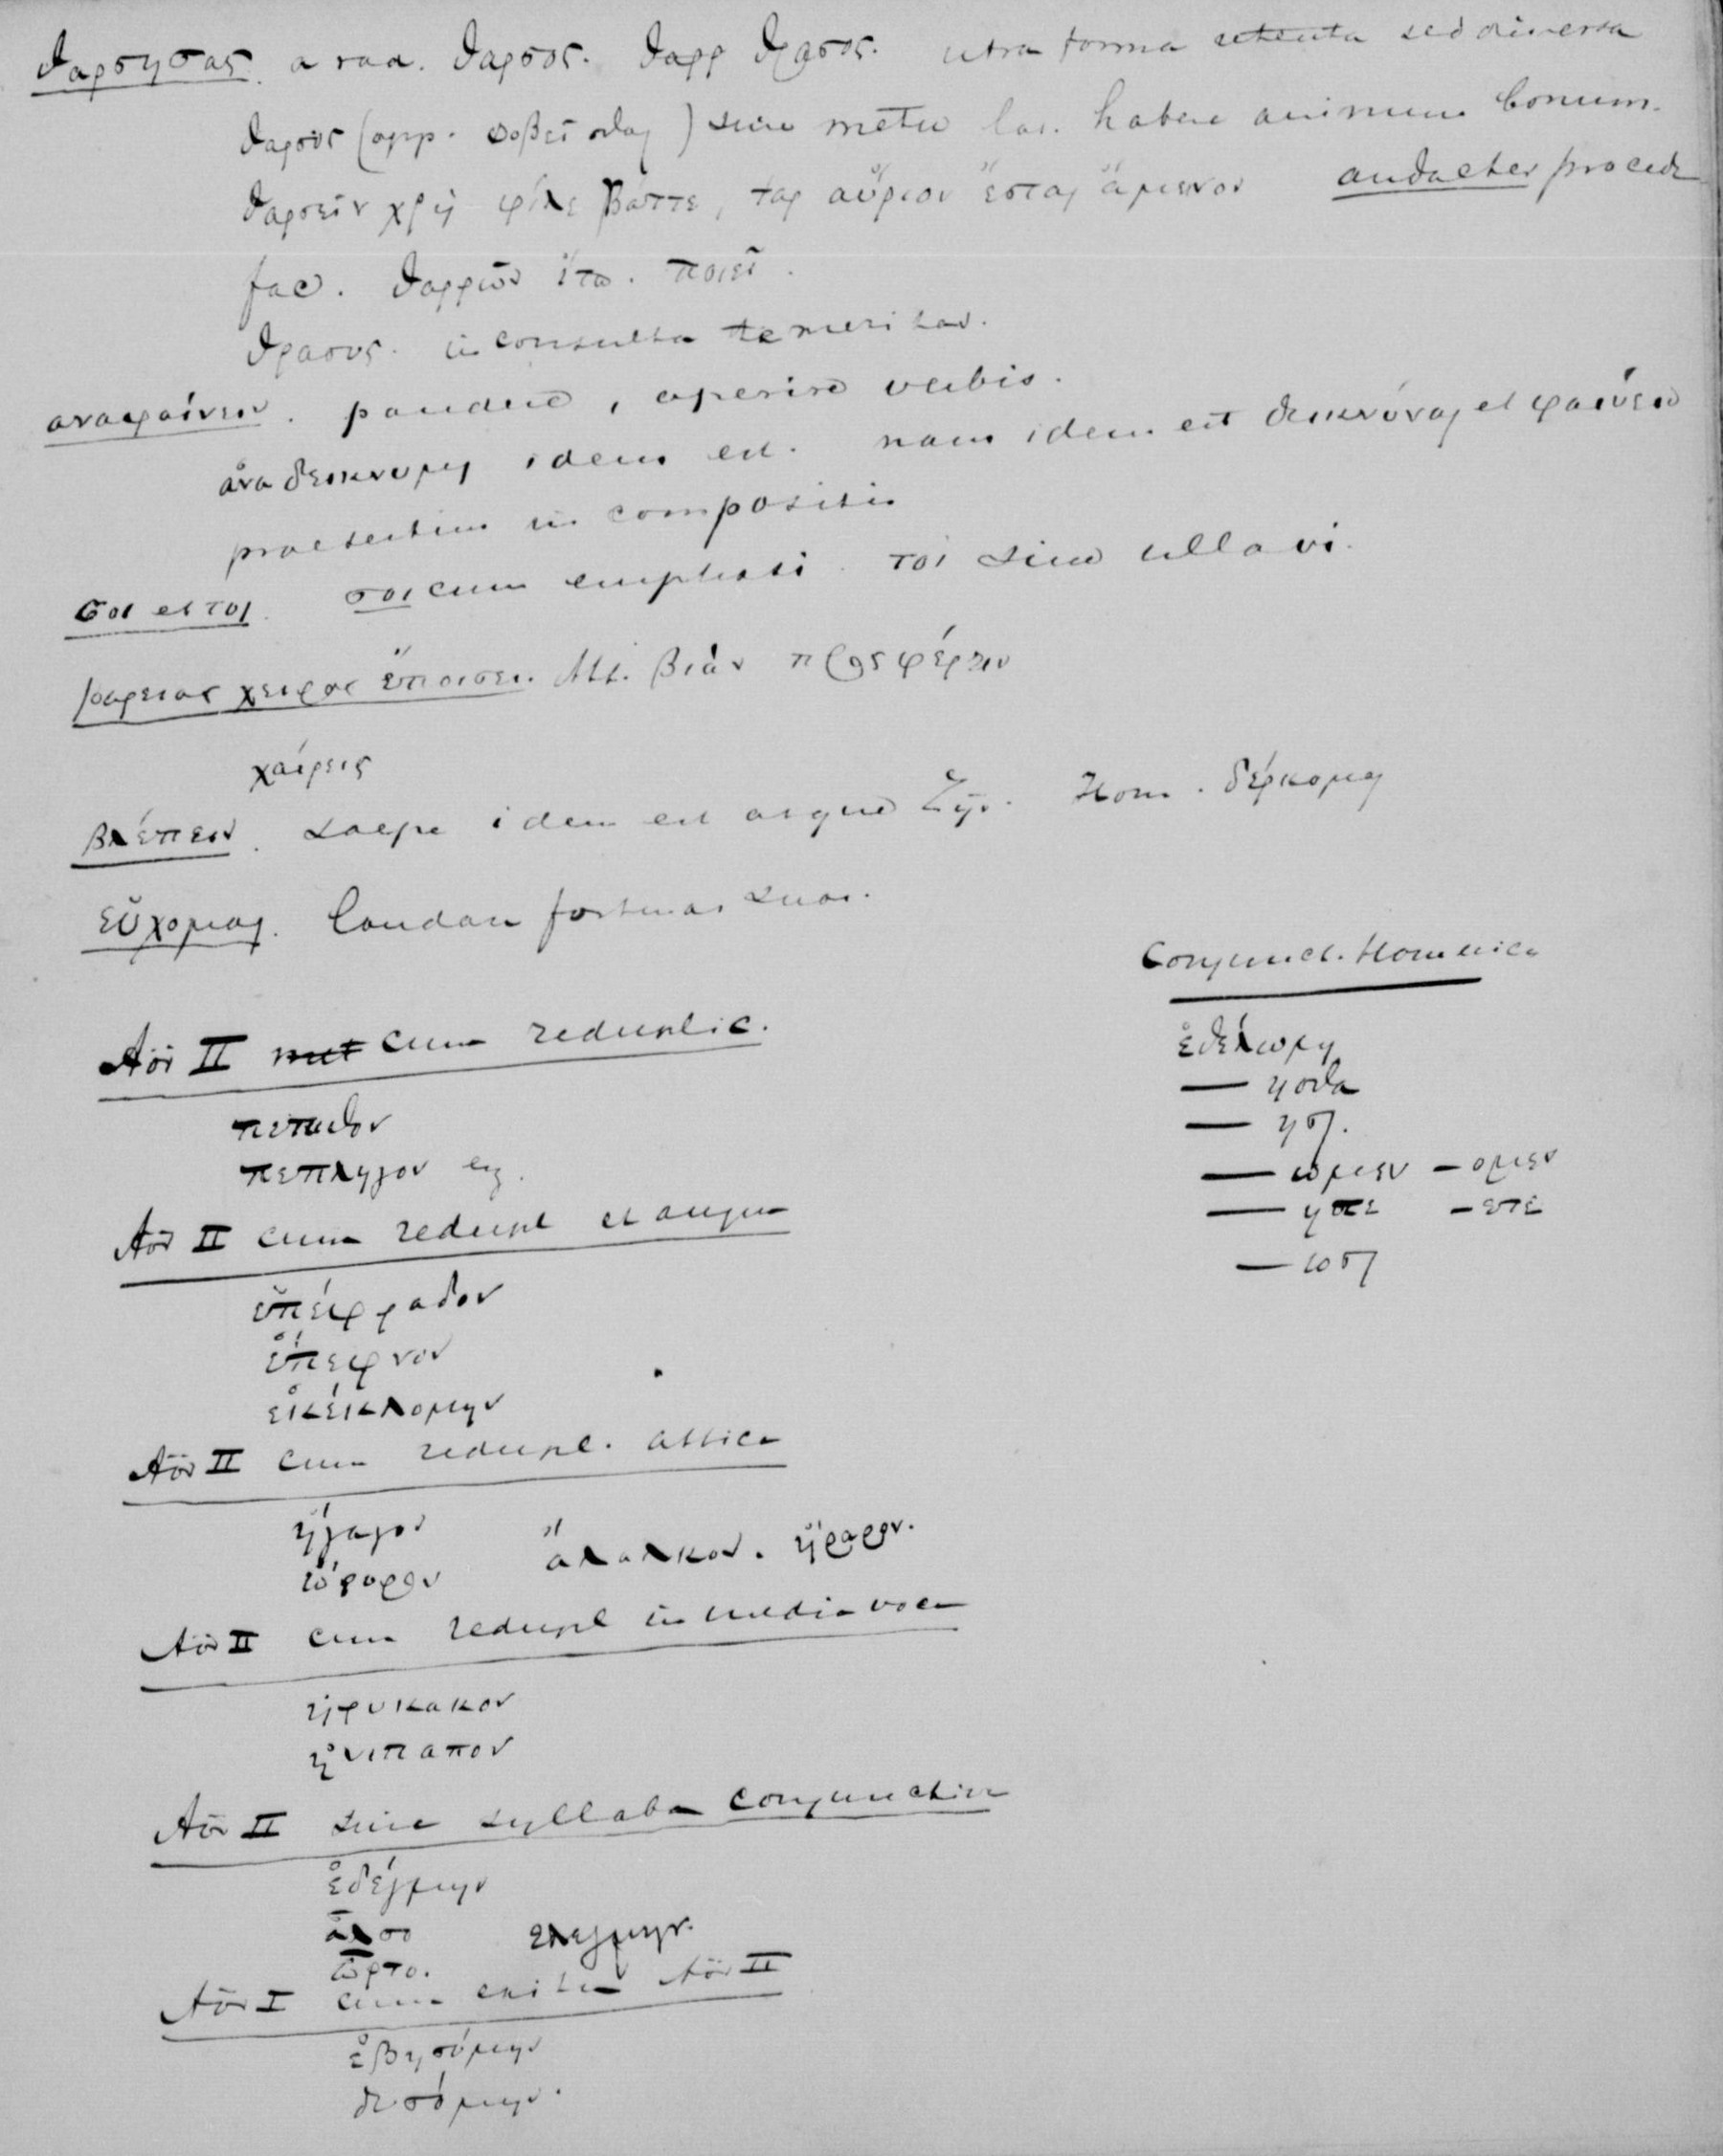 θαρσησας a rad. θαρσος. θαρρ θρασος. utra forma retenta sed diversa
θαρσος (opp. φοβεῖσθαι) sine metu habere animum bonum.
θαρσεῖν χρή φίλε Βάττε, ταχ αὔριον ἔσται ἄμεινον audacter procede
fac. θαρρῶν ἴτω. ποιεῖ.
θρασυς. inconsulta temeritas.
αναφαίνειν. pandere, aperire verbis.
ἀναδεικνυμι idem est. nam idem est δεικνύναι et φαίνειν
praesertim in compositis
σοι et τοι. σοι cum emphasi. τοι sine ulla vi.
βαρειας χειρας ἐποισει. Att. βιὰν προςφέρειν
χαίρεις
βλέπειν. saepe idem est atque ζῆν. Hom. δέρκομαι
εὔχομαι. laudare fortunas suas.
Conjunct. Homerica
Aör II met cum reduplic.
ἐθέλωμι
— ησθα
πεπιθον
— ησι.
πεπληγον
— ωμεν – ομεν
Aör II cum redupl et augm
— ητε – ετε
— ωσι
ἐπέφραδον
ἔπεφνον
ἐκέκλομην
Aör II cum redupl. attica
ἤγαγον
ὤρορον ἄλαλκον. ἤραρον.
Aör II cum redupl in media voce
ἠρυκακον
ἠνιπαπον
Aör II sine syllaba conjunctiva
ἐδέγμην
ἆλσο ελεγμην.
ὦρτο.
Aör I cum exitu Aör II
ἐβησόμην
δυσόμην.